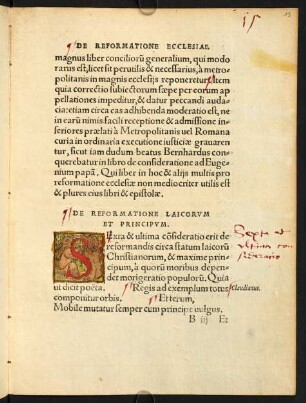 15
DE REFORMATIONE ECCLESIAE.
magnus liber conciliorũ generalium, qui modo
rarus est, licet sit perutilis & necessarius, à metro
politanis in magnis ecclesijs reponeretur. Item
quia correctio subiectorum sæpe per eorum ap
pellationes impeditur, & datur peccandi auda
cia: etiam circa eas adhibenda moderatio est, ne
in earũ nimis facili receptione & admissione in
feriores prælati à Metropolitanis uel Romana
curia in ordinaria executione iusticiæ grauaren
tur, sicut iam dudum beatus Bernhardus con
querebatur in libro de consideratione ad Euge
nium papã. Qui liber in hoc & alijs multis pro
reformatione ecclesiæ non mediocriter utilis est
& plures eius libri & epistolæ.
DE REFORMATIONE LAICORVM
ET PRINCIPVM.
SExta & ultima cõsideratio erit de
reformandis circa statum laicorũ
Christianorum, & maxime prin
cipum, à quorũ moribus depen
det morigeratio populorũ. Quia
ut dicit poeta. Regis ad exemplum totus
componitur orbis. Et iterum,
Mobile mutatur semper cum principe uulgus.
Sexta et
ultima con
sideratio
Claudianus.
B iij Et